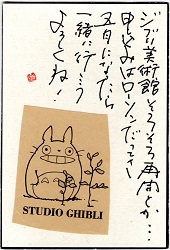 ジブリ美術館
そろそろ再開とか…
申し込みはローソンだって
五月になったら
一緒に行こう
よろしくね!
STUDIO GHIBLI